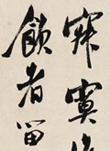 寂寞
飲者留